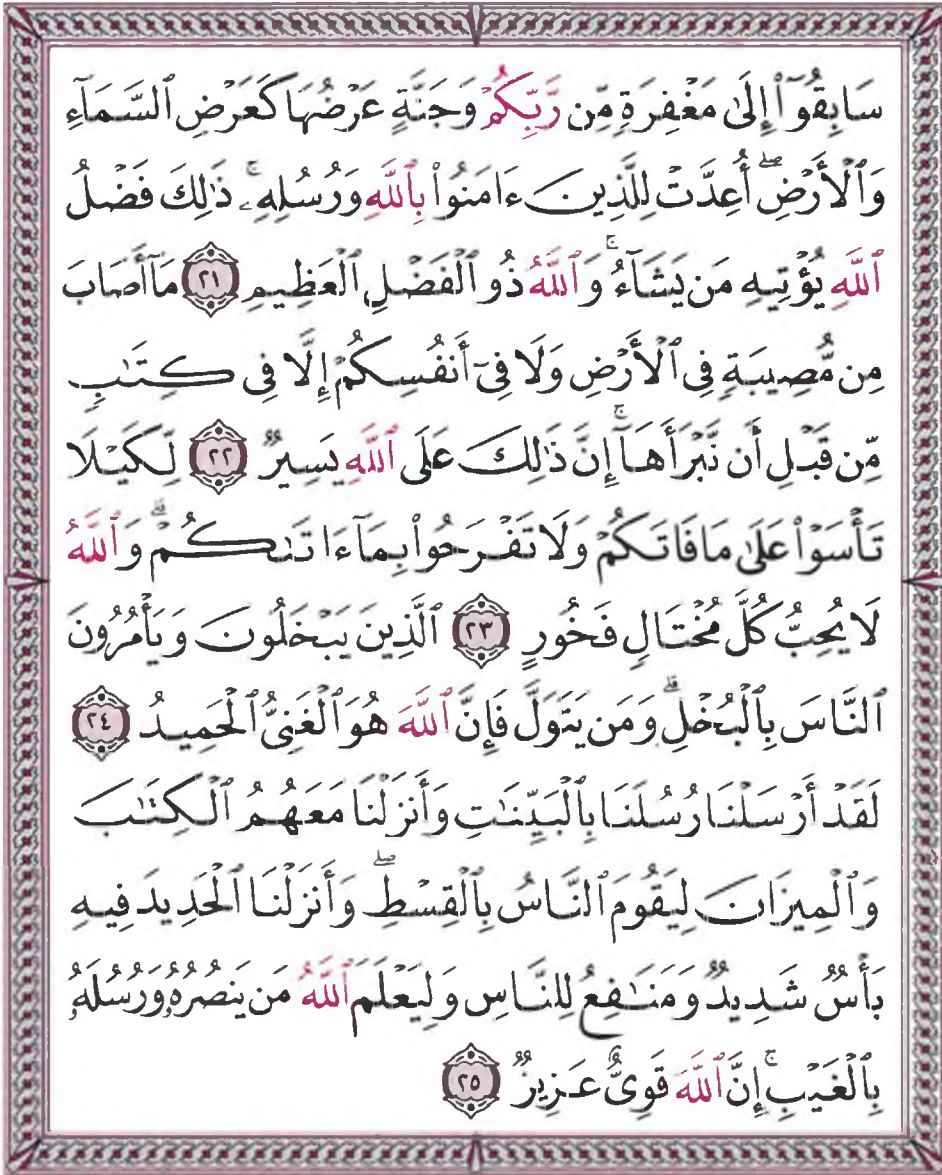 سَابِقُوٓا۟ إِلَىٰ مَغْفِرَةٍ مِّن رَّبِّكُمْ وَجَنَّةٍ عَرْضُهَا كَعَرْضِ ٱلسَّمَآءِ
وَٱلْأَرْضِ ۖ أُعِدَّتْ لِلَّذِينَ ءَامَنُوا۟ بِٱللَّهِ وَرُسُلِهِۦ ۚ ذَٰلِكَ فَضْلُ
ٱللَّهِ يُؤْتِيهِ مَن يَشَآءُ ۚ وَٱللَّهُ ذُو ٱلْفَضْلِ ٱلْعَظِيمِ ٢١ مَآ أَصَابَ
مِن مُّصِيبَةٍ فِى ٱلْأَرْضِ وَلَا فِىٓ أَنفُسِكُمْ إِلَّا فِى كِتَـٰبٍ
مِّن قَبْلِ أَن نَّبْرَأَهَآ ۚ إِنَّ ذَٰلِكَ عَلَى ٱللَّهِ يَسِيرٌ ٢٢ لِّكَيْلَا
تَأْسَوْا۟ عَلَىٰ مَا فَاتَكُمْ وَلَا تَفْرَحُوا۟ بِمَآ ءَاتَىٰكُمْ ۗ وَٱللَّهُ
لَا يُحِبُّ كُلَّ مُخْتَالٍ فَخُورٍ ٢٣ ٱلَّذِينَ يَبْخَلُونَ وَيَأْمُرُونَ
ٱلنَّاسَ بِٱلْبُخْلِ ۗ وَمَن يَتَوَلَّ فَإِنَّ ٱللَّهَ هُوَ ٱلْغَنِىُّ ٱلْحَمِيدُ ٢٤
لَقَدْ أَرْسَلْنَا رُسُلَنَا بِٱلْبَيِّنَـٰتِ وَأَنزَلْنَا مَعَهُمُ ٱلْكِتَـٰبَ
وَٱلْمِيزَانَ لِيَقُومَ ٱلنَّاسُ بِٱلْقِسْطِ ۖ وَأَنزَلْنَا ٱلْحَدِيدَ فِيهِ
بَأْسٌ شَدِيدٌ وَمَنَـٰفِعُ لِلنَّاسِ وَلِيَعْلَمَ ٱللَّهُ مَن يَنصُرُهُۥ وَرُسُلَهُۥ
بِٱلْغَيْبِ ۚ إِنَّ ٱللَّهَ قَوِىٌّ عَزِيزٌ ٢٥